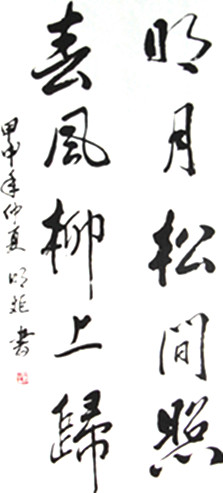 明月松間照
春風柳上歸
甲申年仲夏明炬書